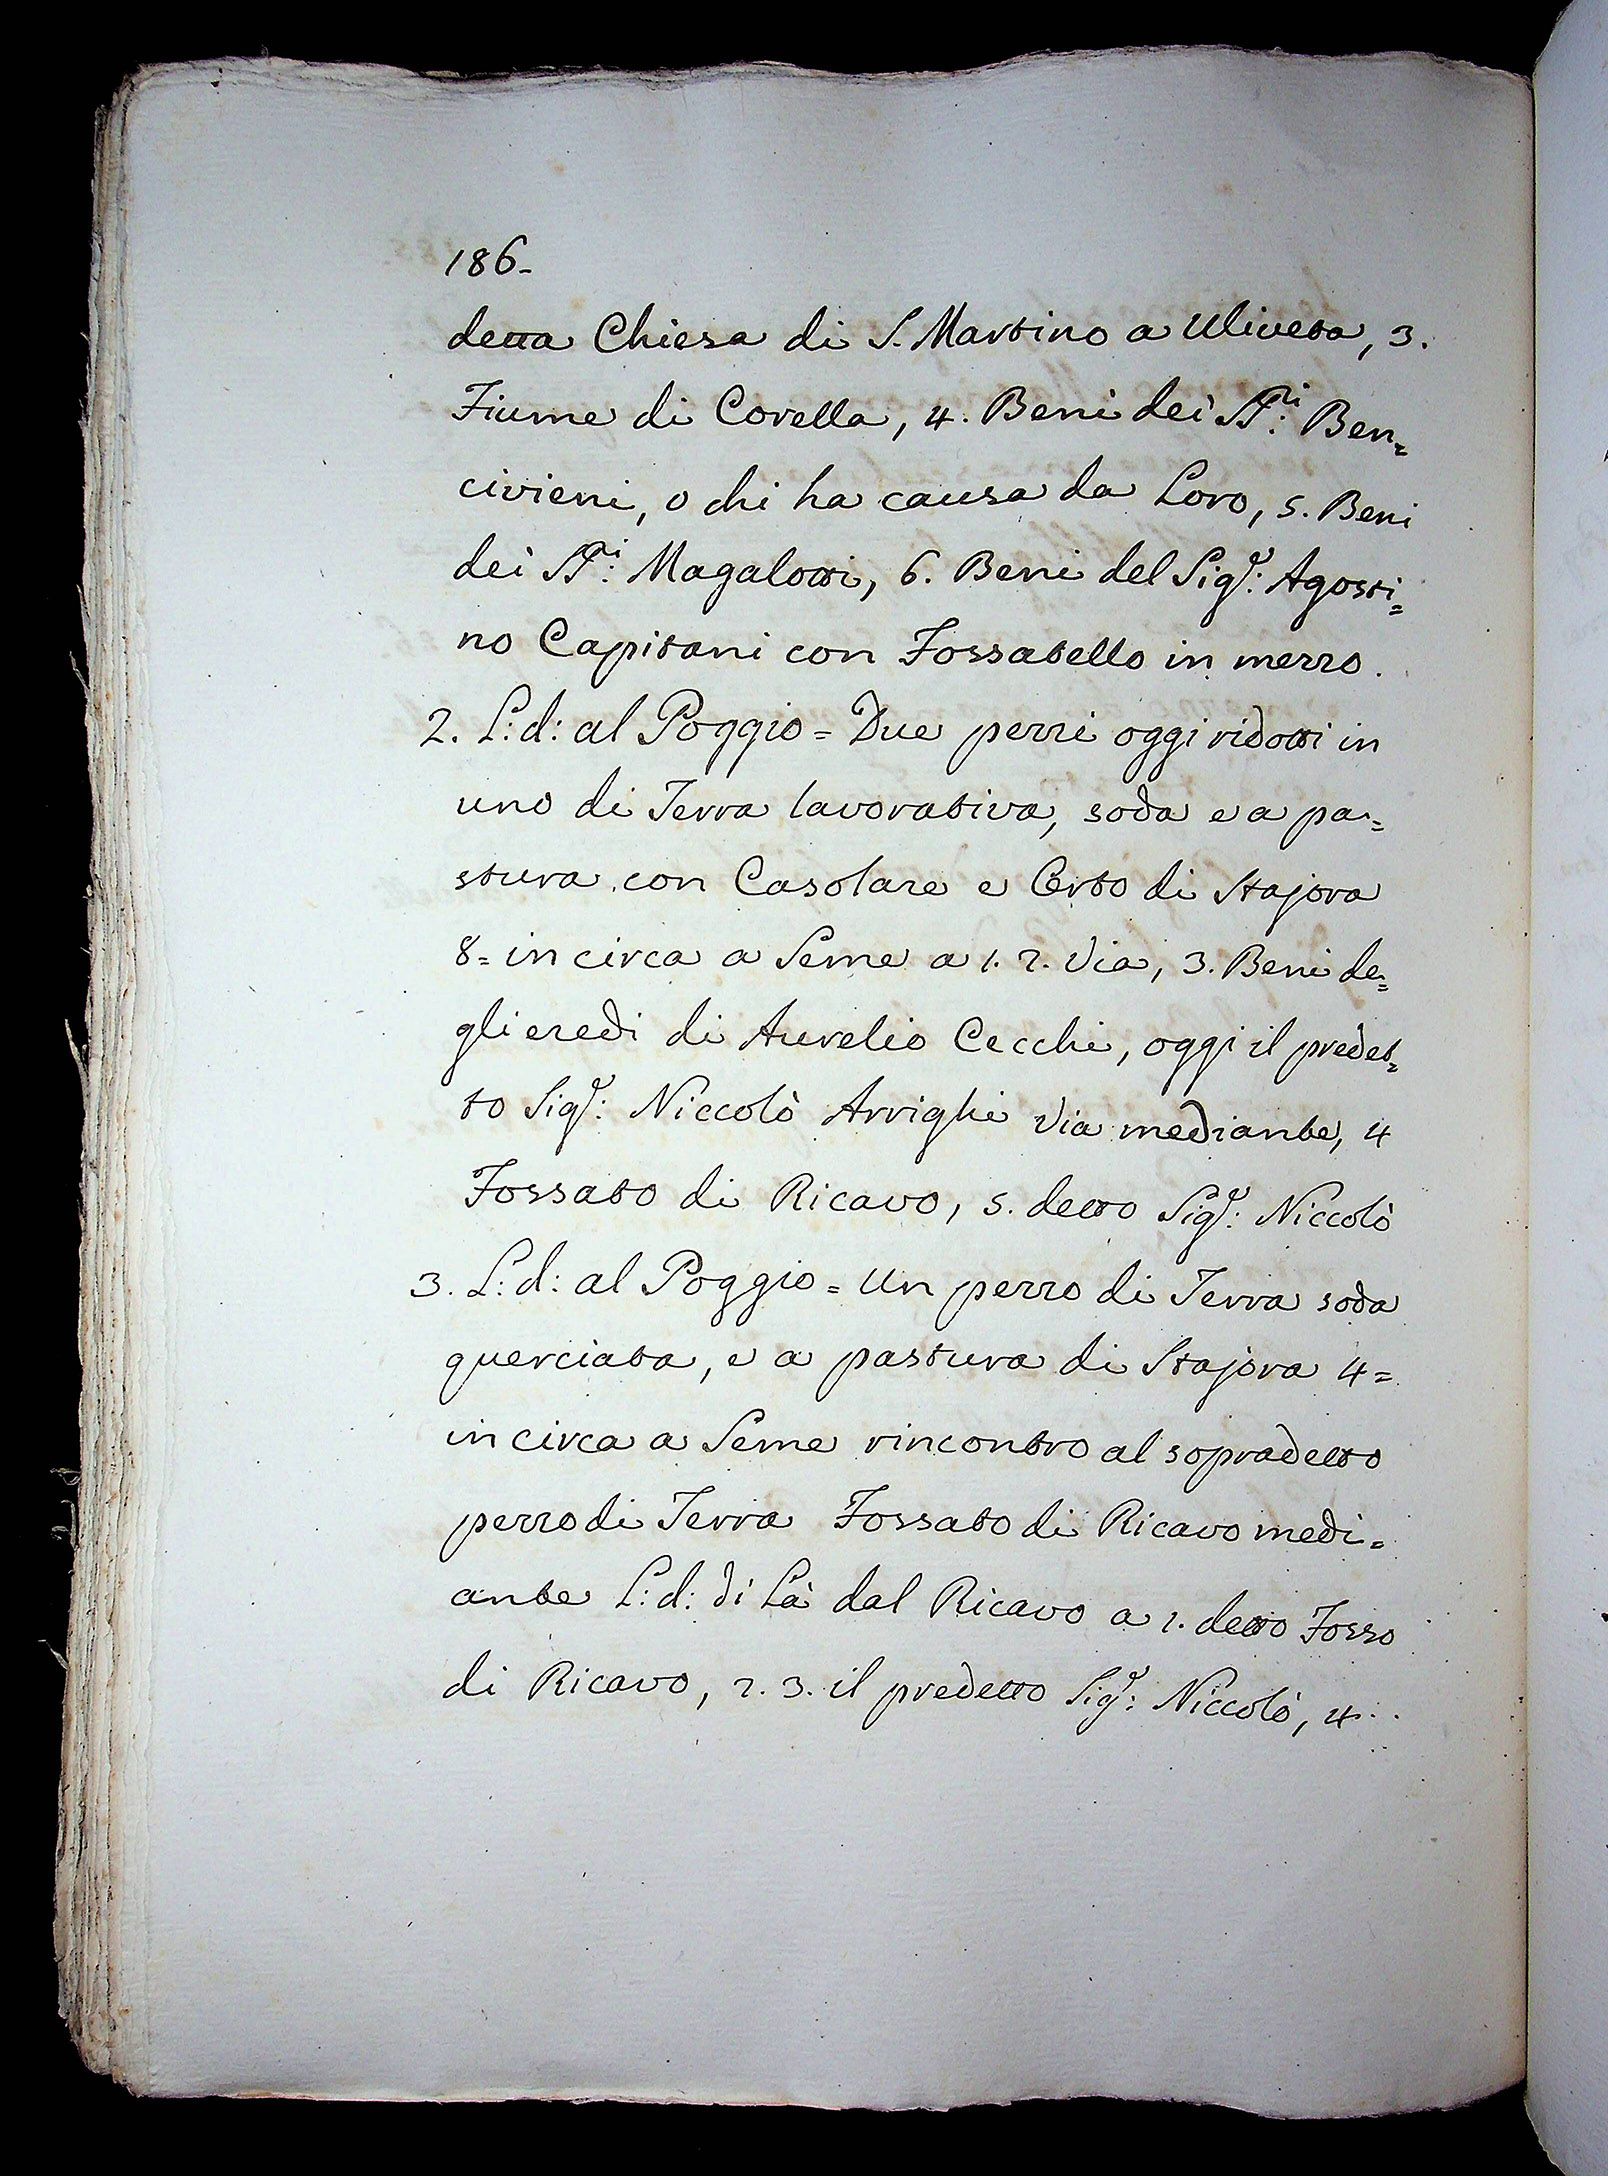 186-
detta Chiesa di S. Martino a Uliveta, 3.
Fiume di Corella, 4. Beni dei SS:ri Ben=
civieni, o chi ha causa da Loro, 5. Beni
dei SS:ri Magalotti, 6. Beni del Sigr: Agosti=
no Capitani con Fossatello in mezzo.
2. L: d: al Poggio = Due pezzi oggi ridotti in
uno di Terra lavorativa, soda e a pa=
stura con Casolare e Orto di Stajora
8= in circa a Seme a 1. 2. Via, 3. Beni de=
gli eredi di Aurelio Cecchi, oggi il predet=
to Sigr: Niccolò Arrighi Via mediante, 4
Fossato di Ricavo, 5. detto Sigr: Niccolò
3. L: d: al Poggio = Un pezzo di Terra soda
querciata, e a pastura di Stajora 4=
in circa a Seme rincontro al sopradetto
pezzo di Terra Fossato di Ricavo medi=
ante L: d: di Là dal Ricavo a 1. detto Fosso
di Ricavo, 2. 3. il predetto Sigr: Niccolò, 4..